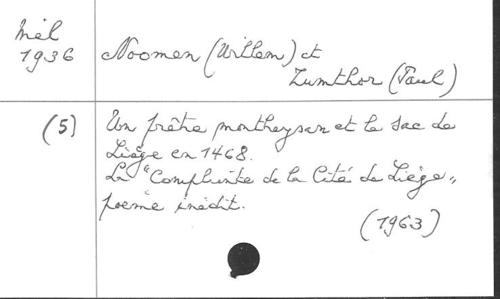 Mél
1936
Noomen (Willem) et
Zumthor (Paul)
(5)
Un prêtre montheysan et le sac de
Liège en 1468.
La "Complainte de la Cité de Liège",
poème inédit.
(1963)